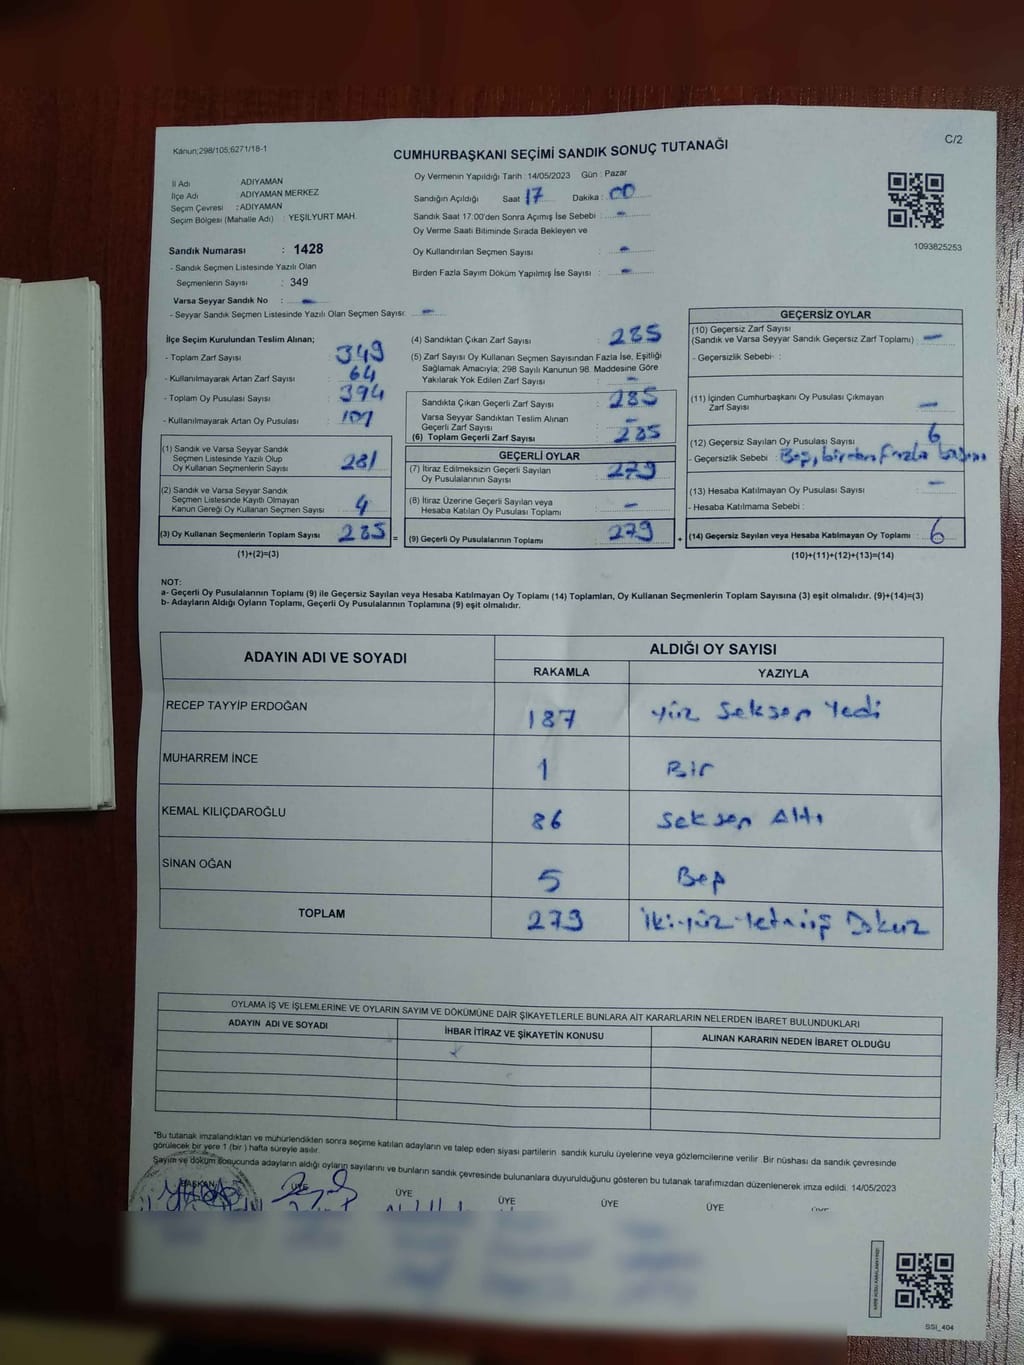 Kanun;298/105;6271/18-1
C/2
CUMHURBAŞKANI SEÇİMİ SANDIK SONUÇ TUTANAĞI
İl Adı ADIYAMAN
İlçe Adı : ADIYAMAN MERKEZ
Seçim Çevresi : ADIYAMAN
Seçim Bölgesi (Mahalle Adı) : YEŞİLYURT MAH.
Oy Vermenin Yapıldığı Tarih : 14/05/2023 Gün : Pazar
Sandığın Açıldığı Saat : 17 Dakika : 00
Sandık Saat 17:00'den Sonra Açımış İse Sebebi : -
Oy Verme Saati Bitiminde Sırada Bekleyen ve
Oy Kullandırılan Seçmen Sayısı : -
Birden Fazla Sayım Döküm Yapılmış İse Sayısı : -
1093825253
Sandık Numarası : 1428
- Sandık Seçmen Listesinde Yazılı Olan
Seçmenlerin Sayısı : 349
Varsa Seyyar Sandık No : -
- Seyyar Sandık Seçmen Listesinde Yazılı Olan Seçmen Sayısı: -
İlçe Seçim Kurulundan Teslim Alınan;
- Toplam Zarf Sayısı : 349
- Kullanılmayarak Artan Zarf Sayısı : 64
- Toplam Oy Pusulası Sayısı : 394
- Kullanılmayarak Artan Oy Pusulası :
(1) Sandık ve Varsa Seyyar Sandık
Seçmen Listesinde Yazılı Olup
Oy Kullanan Seçmenlerin Sayısı : 281
(2) Sandık ve Varsa Seyyar Sandık
Seçmen Listesinde Kayıtlı Olmayan
Kanun Gereği Oy Kullanan Seçmen Sayısı : 4
(3) Oy Kullanan Seçmenlerin Toplam Sayısı : 285
(1)+(2)=(3)
(4) Sandıktan Çıkan Zarf Sayısı : 285
(5) Zarf Sayısı Oy Kullanan Seçmen Sayısından Fazla İse, Eşitliği
Sağlamak Amacıyla; 298 Sayılı Kanunun 98. Maddesine Göre
Yakılarak Yok Edilen Zarf Sayısı : -
Sandıkta Çıkan Geçerli Zarf Sayısı : 285
Varsa Seyyar Sandıktan Teslim Alınan
Geçerli Zarf Sayısı : -
(6) Toplam Geçerli Zarf Sayısı : 285
GEÇERLİ OYLAR
(7) İtiraz Edilmeksizin Geçerli Sayılan
Oy Pusulalarının Sayısı : 279
(8) İtiraz Üzerine Geçerli Sayılan veya
Hesaba Katılan Oy Pusulası Toplamı : -
= (9) Geçerli Oy Pusulalarının Toplamı : 279
GEÇERSİZ OYLAR
(10) Geçersiz Zarf Sayısı
(Sandık ve Varsa Seyyar Sandık Geçersiz Zarf Toplamı) : -
- Geçersizlik Sebebi :
(11) İçinden Cumhurbaşkanı Oy Pusulası Çıkmayan
Zarf Sayısı : -
(12) Geçersiz Sayılan Oy Pusulası Sayısı : 6
- Geçersizlik Sebebi : Boş, birden fazla
(13) Hesaba Katılmayan Oy Pusulası Sayısı : -
- Hesaba Katılmama Sebebi :
+ (14) Geçersiz Sayılan veya Hesaba Katılmayan Oy Toplamı : 6
(10)+(11)+(12)+(13)=(14)
NOT:
a- Geçerli Oy Pusulalarının Toplamı (9) ile Geçersiz Sayılan veya Hesaba Katılmayan Oy Toplamı (14) Toplamları, Oy Kullanan Seçmenlerin Toplam Sayısına (3) eşit olmalıdır. (9)+(14)=(3)
b- Adayların Aldığı Oyların Toplamı, Geçerli Oy Pusulalarının Toplamına (9) eşit olmalıdır.
ADAYIN ADI VE SOYADI ALDIĞI OY SAYISI
RAKAMLA YAZIYLA
RECEP TAYYİP ERDOĞAN 187 Yüz Seksen Yedi
MUHARREM İNCE 1 Bir
KEMAL KILIÇDAROĞLU 86 Seksen Altı
SİNAN OĞAN 5 Beş
TOPLAM 279 İkiyüz Yetmiş Dokuz
OYLAMA İŞ VE İŞLEMLERİNE VE OYLARIN SAYIM VE DÖKÜMÜNE DAİR ŞİKAYETLERLE BUNLARA AİT KARARLARIN NELERDEN İBARET BULUNDUKLARI
ADAYIN ADI VE SOYADI İHBAR İTİRAZ VE ŞİKAYETİN KONUSU ALINAN KARARIN NEDEN İBARET OLDUĞU
*Bu tutanak imzalandıktan ve mühürlendikten sonra seçime katılan adayların ve talep eden siyasi partilerin sandık kurulu üyelerine veya gözlemcilerine verilir. Bir nüshası da sandık çevresinde
görülecek bir yere 1 (bir) hafta süreyle asılır.
Sayım ve döküm sonucunda adayların aldığı oyların sayılarını ve bunların sandık çevresinde bulunanlara duyurulduğunu gösteren bu tutanak tarafımızdan düzenlenerek imza edildi. 14/05/2023
BAŞKAN ÜYE ÜYE ÜYE ÜYE ÜYE
SSİ_404